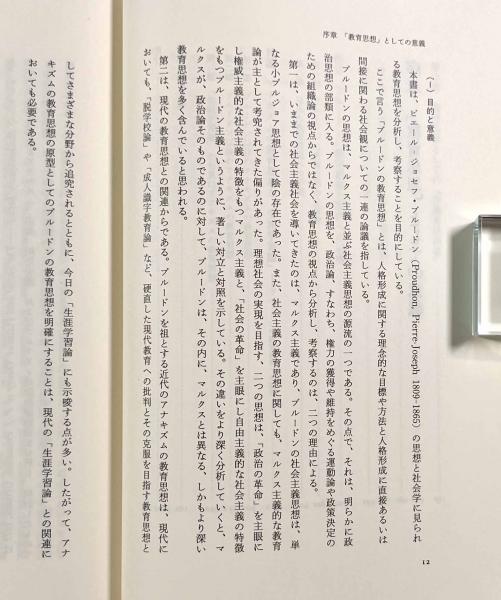 序章 「教育思想」としての意義
12
(一) 目的と意義
本書は、ピエール＝ジョセフ・プルードン(Proudhon, Pierre-Joseph 1809–1865)の思想と社会学に見られ
る教育思想を分析し、考察することを目的にしている。
ここで言う「プルードンの教育思想」とは、人格形成に関する理念的な目標や方法と人格形成に直接あるいは
間接に関わる社会観についての一連の論議を指している。
プルードンの思想は、マルクス主義と並ぶ社会主義思想の源流の一つである。その点で、それは、明らかに政
治思想の部類に入る。プルードンの思想を、政治論、すなわち、権力の獲得や維持をめぐる運動論や政策決定の
ための組織論の視点からではなく、教育思想の視点から分析し、考察するのは、二つの理由による。
第一は、いままでの社会主義社会を導いてきたのは、マルクス主義であり、プルードンの社会主義思想は、単
なる小ブルジョア思想として陰の存在であった。また、社会主義の教育思想に関しても、マルクス主義的な教育
論が主として考究されてきた偏りがあった。理想社会の実現を目指す、二つの思想は、「政治の革命」を主眼に
し権威主義的な社会主義の特徴をもつマルクス主義と、「社会の革命」を主眼にし自由主義的な社会主義の特徴
をもつプルードン主義というように、著しい対立と対照を示している。その違いをより深く分析していくと、マ
ルクスが、政治論そのものであるのに対して、プルードンは、その内に、マルクスとは異なる、しかもより深い
教育思想を多く含んでいると思われる。
第二は、現代の教育思想との関連からである。プルードンを祖とする近代のアナキズムの教育思想は、現代に
おいても、「脱学校論」や、「成人識字教育論」など、硬直した現代教育への批判とその克服を目指す教育思想と
してさまざまな分野から追究されるとともに、今日の「生涯学習論」にも示唆する点が多い。したがって、アナ
キズムの教育思想の原型としてのプルードンの教育思想を明確にすることは、現代の「生涯学習論」との関連に
おいても必要である。